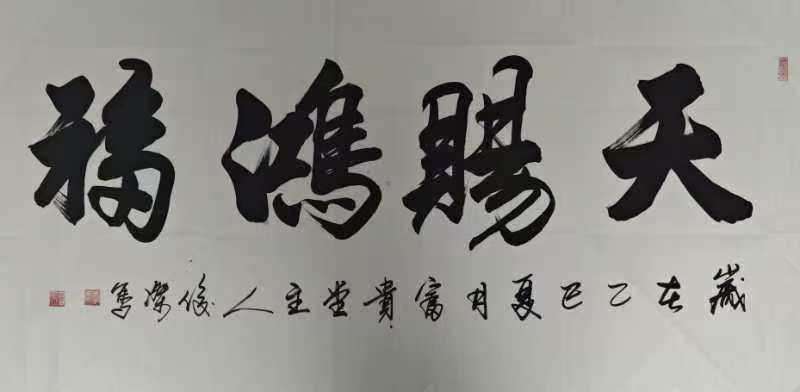 天賜鴻福
歲在乙巳夏月富貴堂主人俊榮書